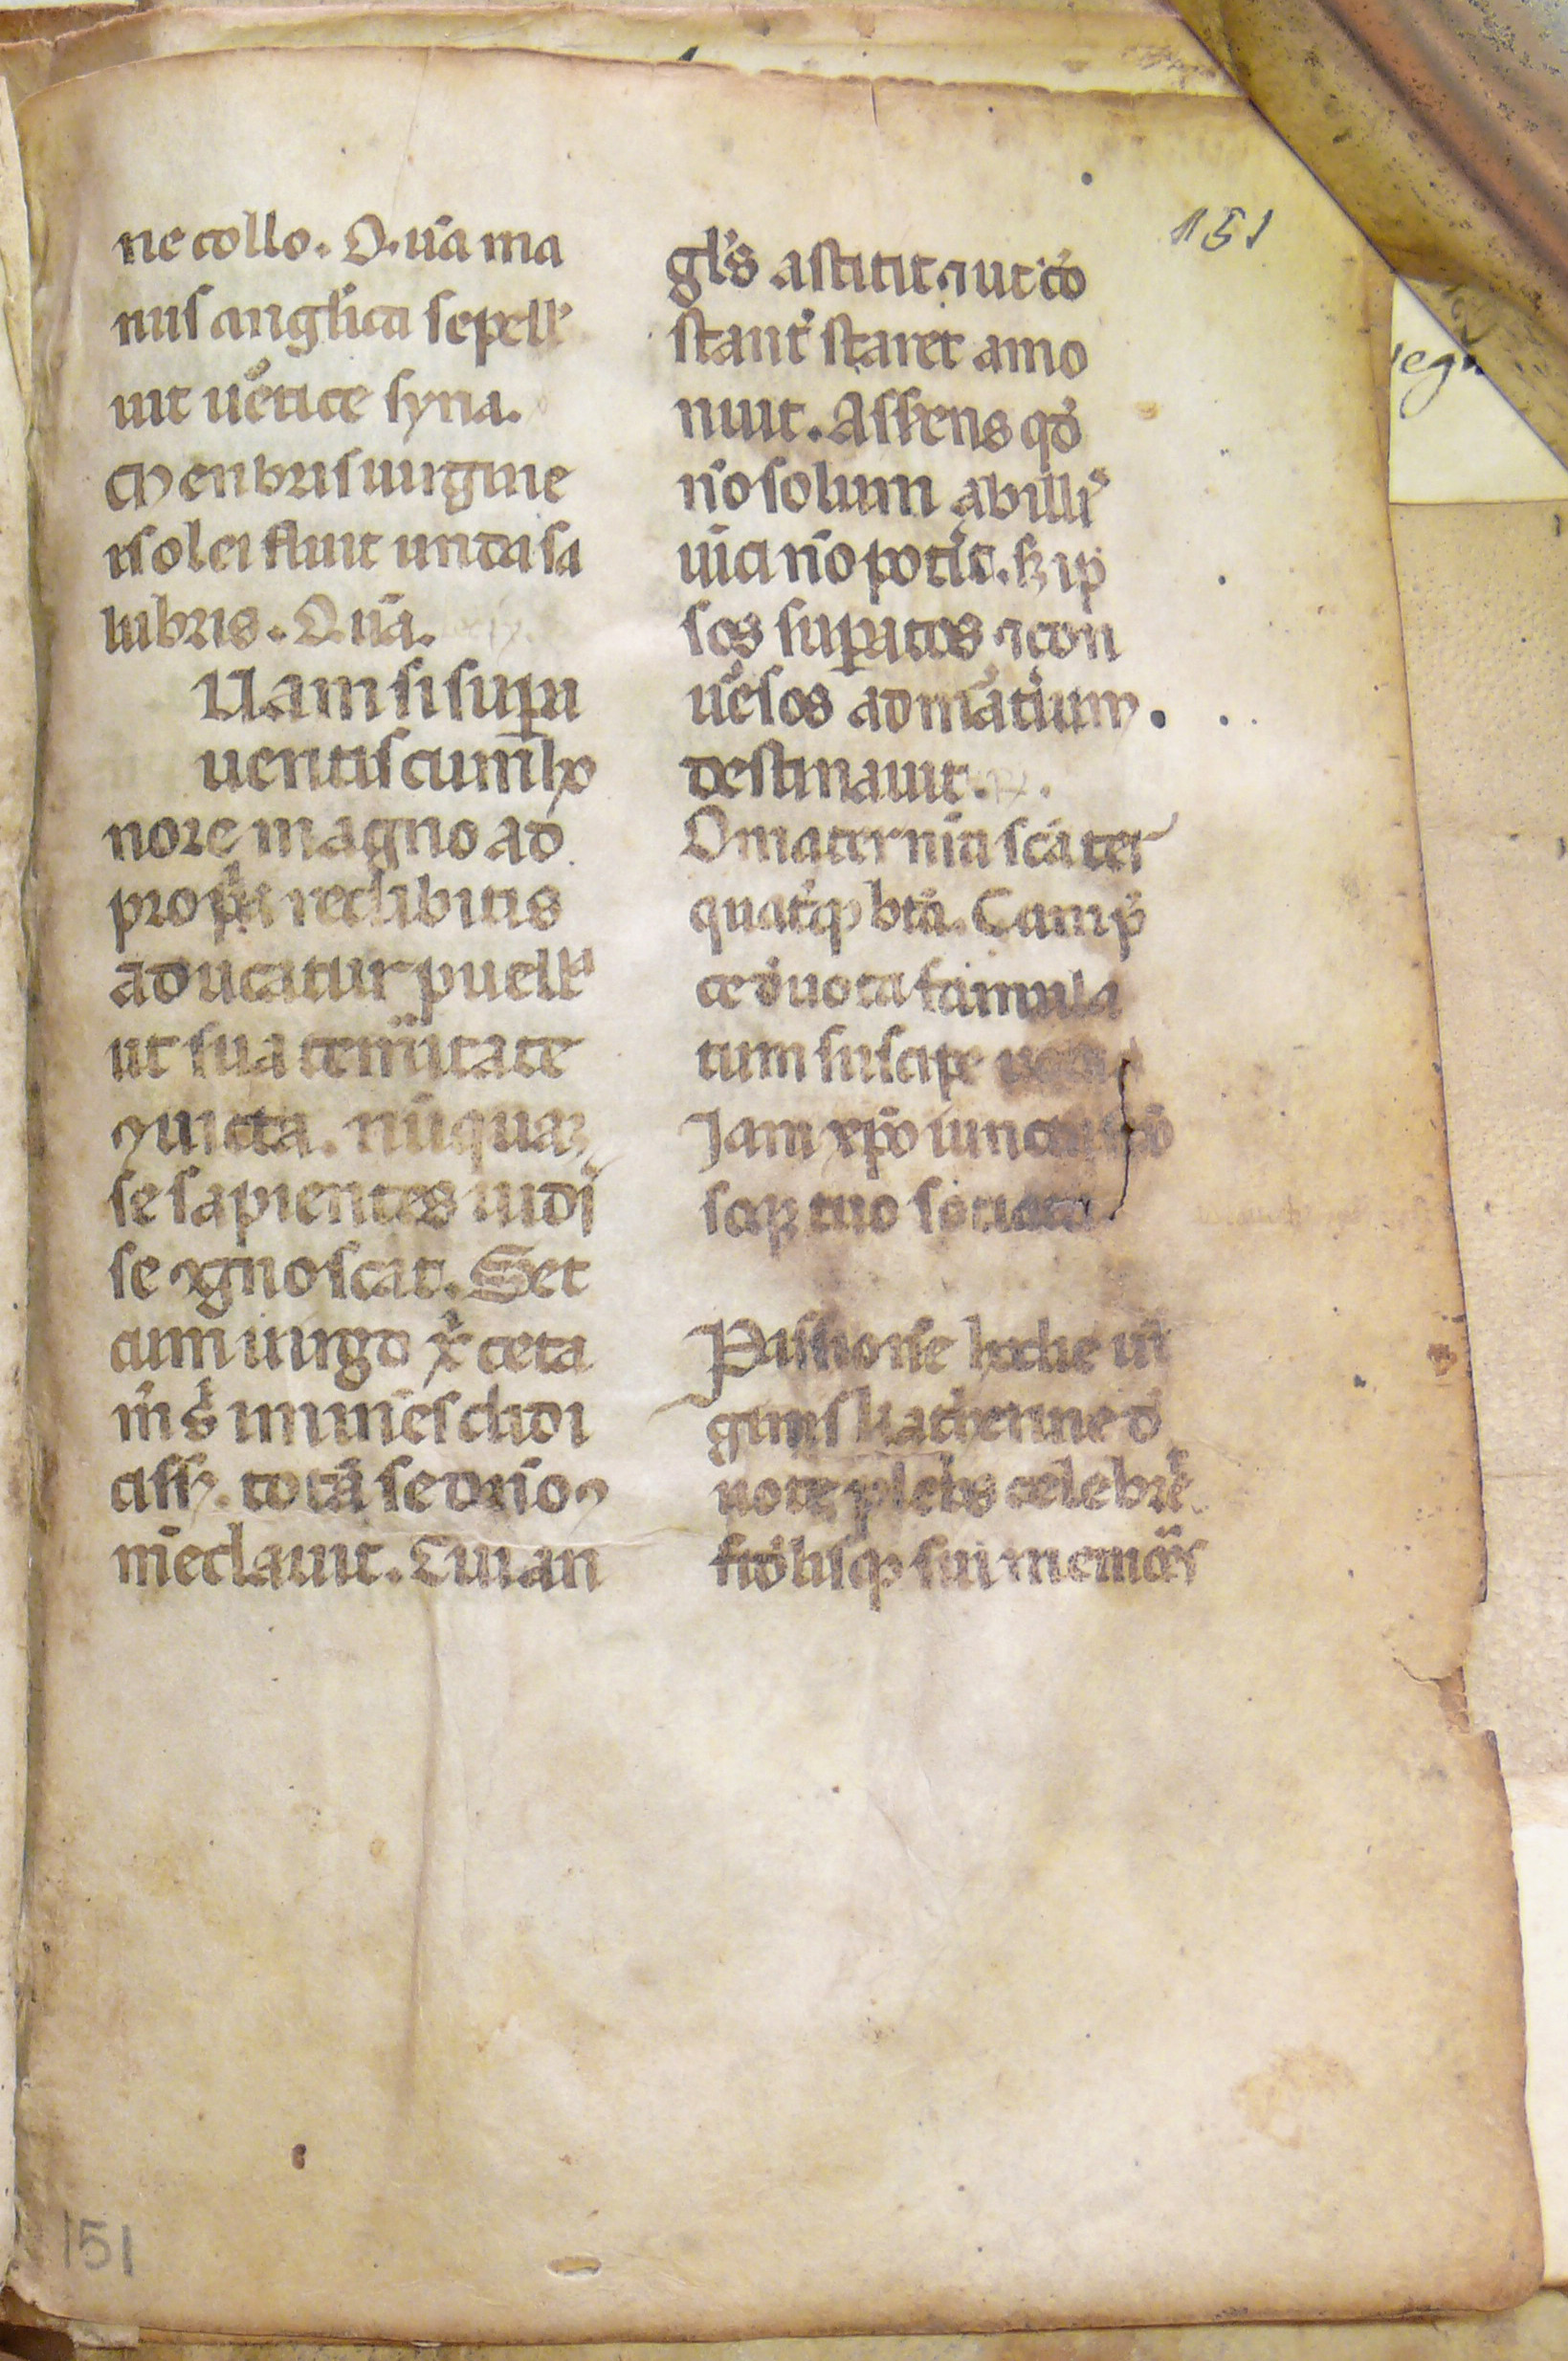 151
ne collo. Q.uā ma
nus anglica sepeli
uit uertice syna.
Menbris uirgine
is olei fluit unda sa
lubris. Q.uā.
Nam si supa
uentis cum ho
nore magno ad
propria redibitis
aducatur puella
ut sua temitate
ꝯuicta. nūquaꝫ
se sapientes uidi
se ꝯgnoscat. Set
cum uirgo
in imines didi
cissꝫ. totā se dn̄o ꝯ
mēdauit. Cui an
gl's astitit ⁊ ut cō
stant' staret amo
nuit. Asserens qd'
nō solum ab illis
uīci nō pot'it. sꝫ ip
sos supatos ⁊ con
u'sos ad martirium.
destinauit.
O mater nr̄a scā ter
quat'qꝫ btā. Cam p
ce d'uota famula
tum suscipe
Jam xp̄o iuncta
tuo sociata
Passione hodie uir
ginis katherine d'
uote plebs celebre
memor
151